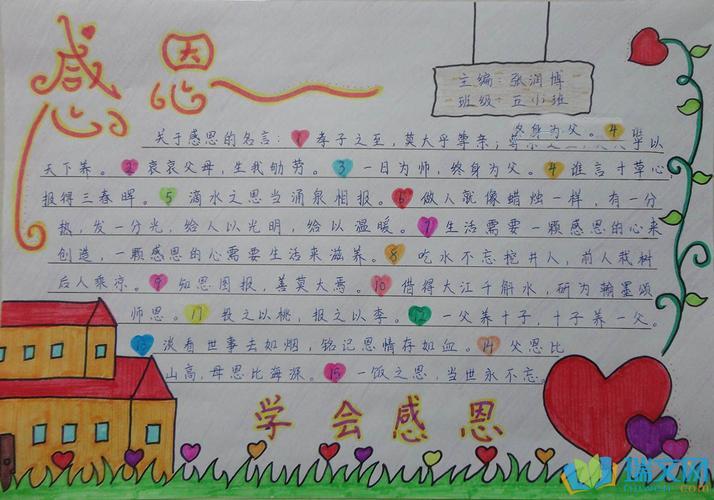 感恩
主编：张润博
班级：五小班
终身为父。4
关于感恩的名言：1 孝子之至，莫大乎尊亲；尊亲之至，莫大乎以
天下养。2 哀哀父母，生我劬劳。3 一日为师，终身为父。4 谁言寸草心，
报得三春晖。5 滴水之恩当涌泉相报。6 做人就像蜡烛一样，有一分
热，发一分光，给人以光明，给以温暖。7 生活需要一颗感恩的心来
创造，一颗感恩的心需要生活来滋养。8 吃水不忘挖井人，前人栽树
后人乘凉。9 知恩图报，善莫大焉。10 借得大江千斛水，研为翰墨颂
师恩。11 投之以桃，报之以李。12 一父养十子，十子养一父。
13 淡看世事去如烟，铭记恩情存如血。14 父恩比
山高，母恩比海深。15 一饭之恩，当世永不忘。
学会感恩
瑞文网